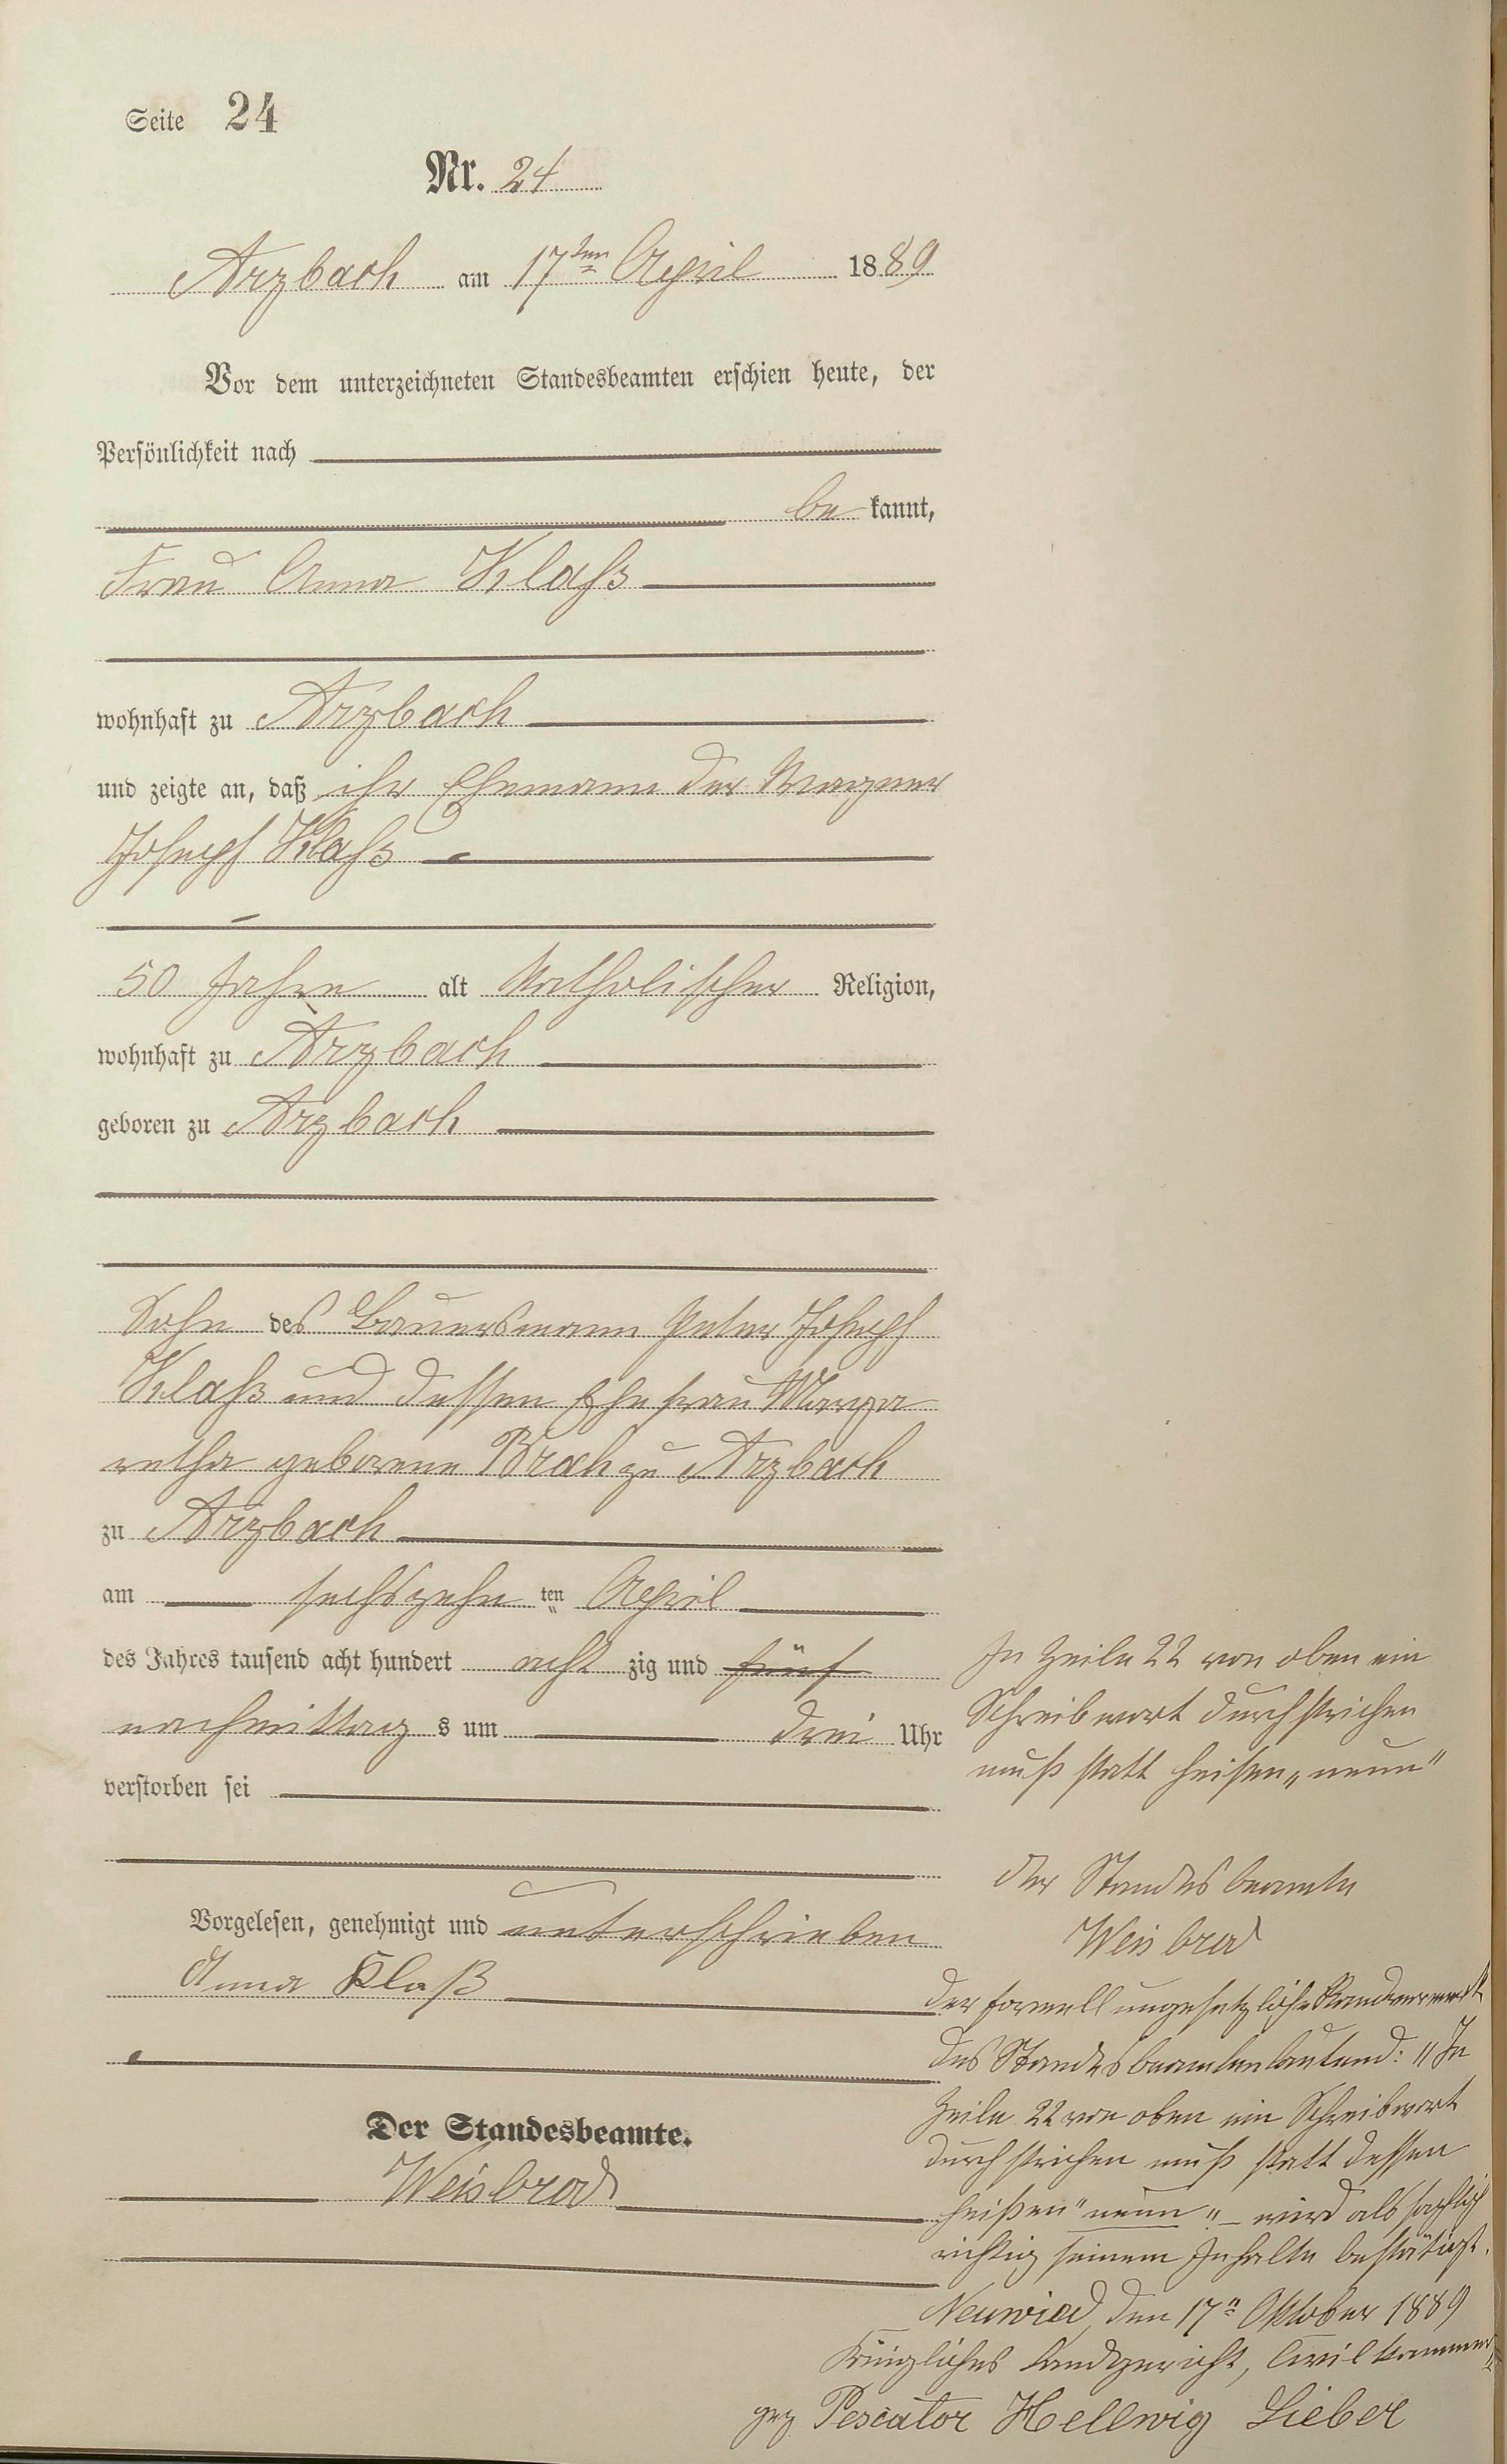 Seite 24
Nr. 24
Arzbach am 17ten April 1889
Vor dem unterzeichneten Standesbeamten erschien heute, der
Persönlichkeit nach
be kannt,
Frau Anna Klaß
wohnhaft zu Arzbach
und zeigte an, daß ihr Ehemann der Wagner
Joseph Klaß
50 Jahre alt katholischer Religion,
wohnhaft zu Arzbach
geboren zu Arzbach
Sohn des Bauersmann Peter Joseph
Klaß und dessen Ehefrau Marga
retha geborene Brah zu Arzbach
zu Arzbach
am sechszehn ten April
des Jahres tausend acht hundert acht zig und fünf
nachmittag s um drei Uhr
verstorben sei
Vorgelesen, genehmigt und unterschrieben
Anna Klaß
Der Standesbeamte.
Weisbrod
In Zeile 22 von oben ein
Schreibwort durchstrichen
muß statt heisen „neun"
Der Standesbeamte
Weisbrod
Der formell ungesetzliche Randvermerk
des Standesbeamten lautend: "In
Zeile 22 von oben ein Schreibwort
durchstrichen muß statt dessen
heißen "neun" – wird als sachlich
richtig seinem Inhalte bestätigt.
Neuwied, den 17n Oktober 1889
Königliches Landgericht, Civilkammer
gez Pescator Hellwig Lieber